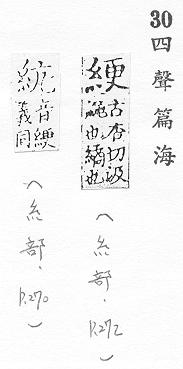 30四聲篇海
綆古杏切汲
繩也繘也
(糸部.p.272)
統音綆
義同
(糸部.p.270)